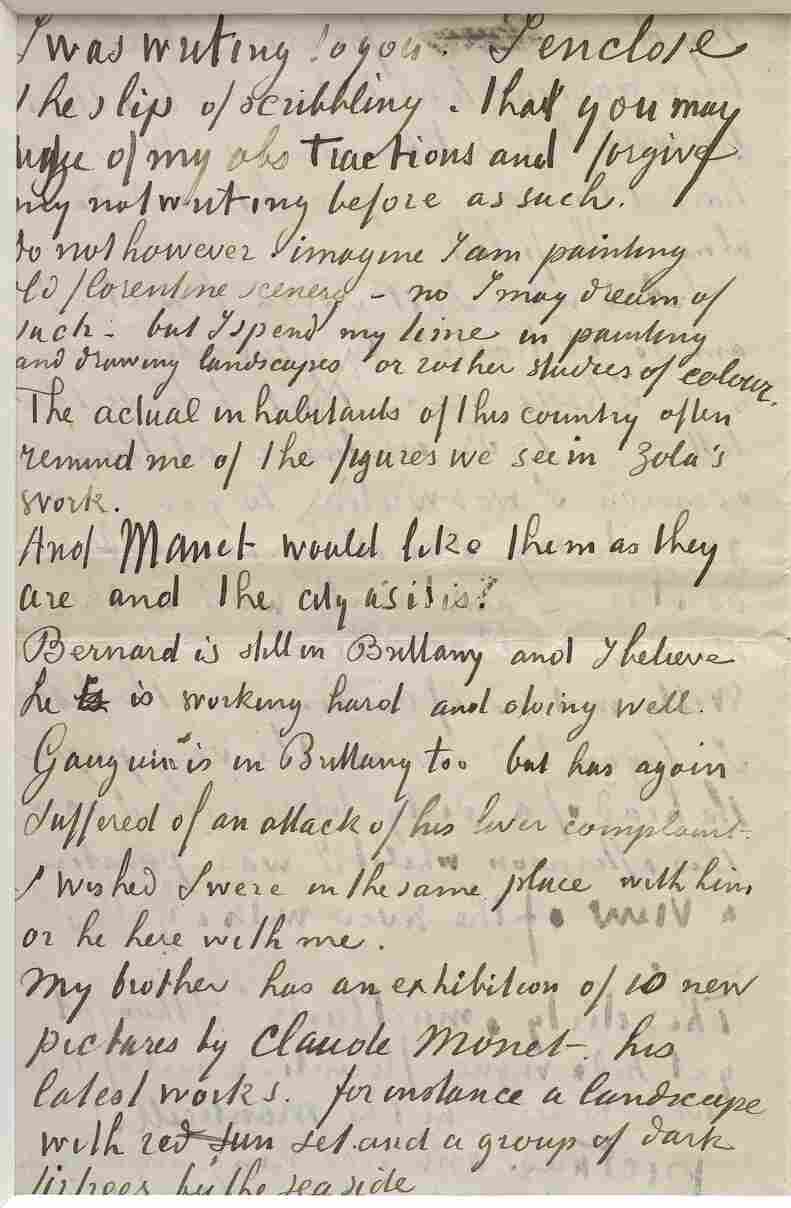 I was writing to you. I enclose
the slip of scribbling. that you may
udge of my abstractions and forgive
my not writing before as such.
Do not however imagine I am painting
old florentine scenery – no I may dream of
such – but I spend my time in painting
and drawing landscapes or rather studies of colour.
The actual inhabitants of this country often
remind me of the figures we see in Zola's
work.
And Manet would like them as they
are and the city as it is.
Bernard is still in Brittany and I believe
he is is working hard and doing well.
Gauguin is in Brittany too but has again
suffered of an attack of his liver complaint.
I wished I were in the same place with him
or he here with me.
My brother has an exhibition of 10 new
pictures by Claude Monet. his
latest works. for instance a landscape
with red sun set and a group of dark
firtrees by the seaside